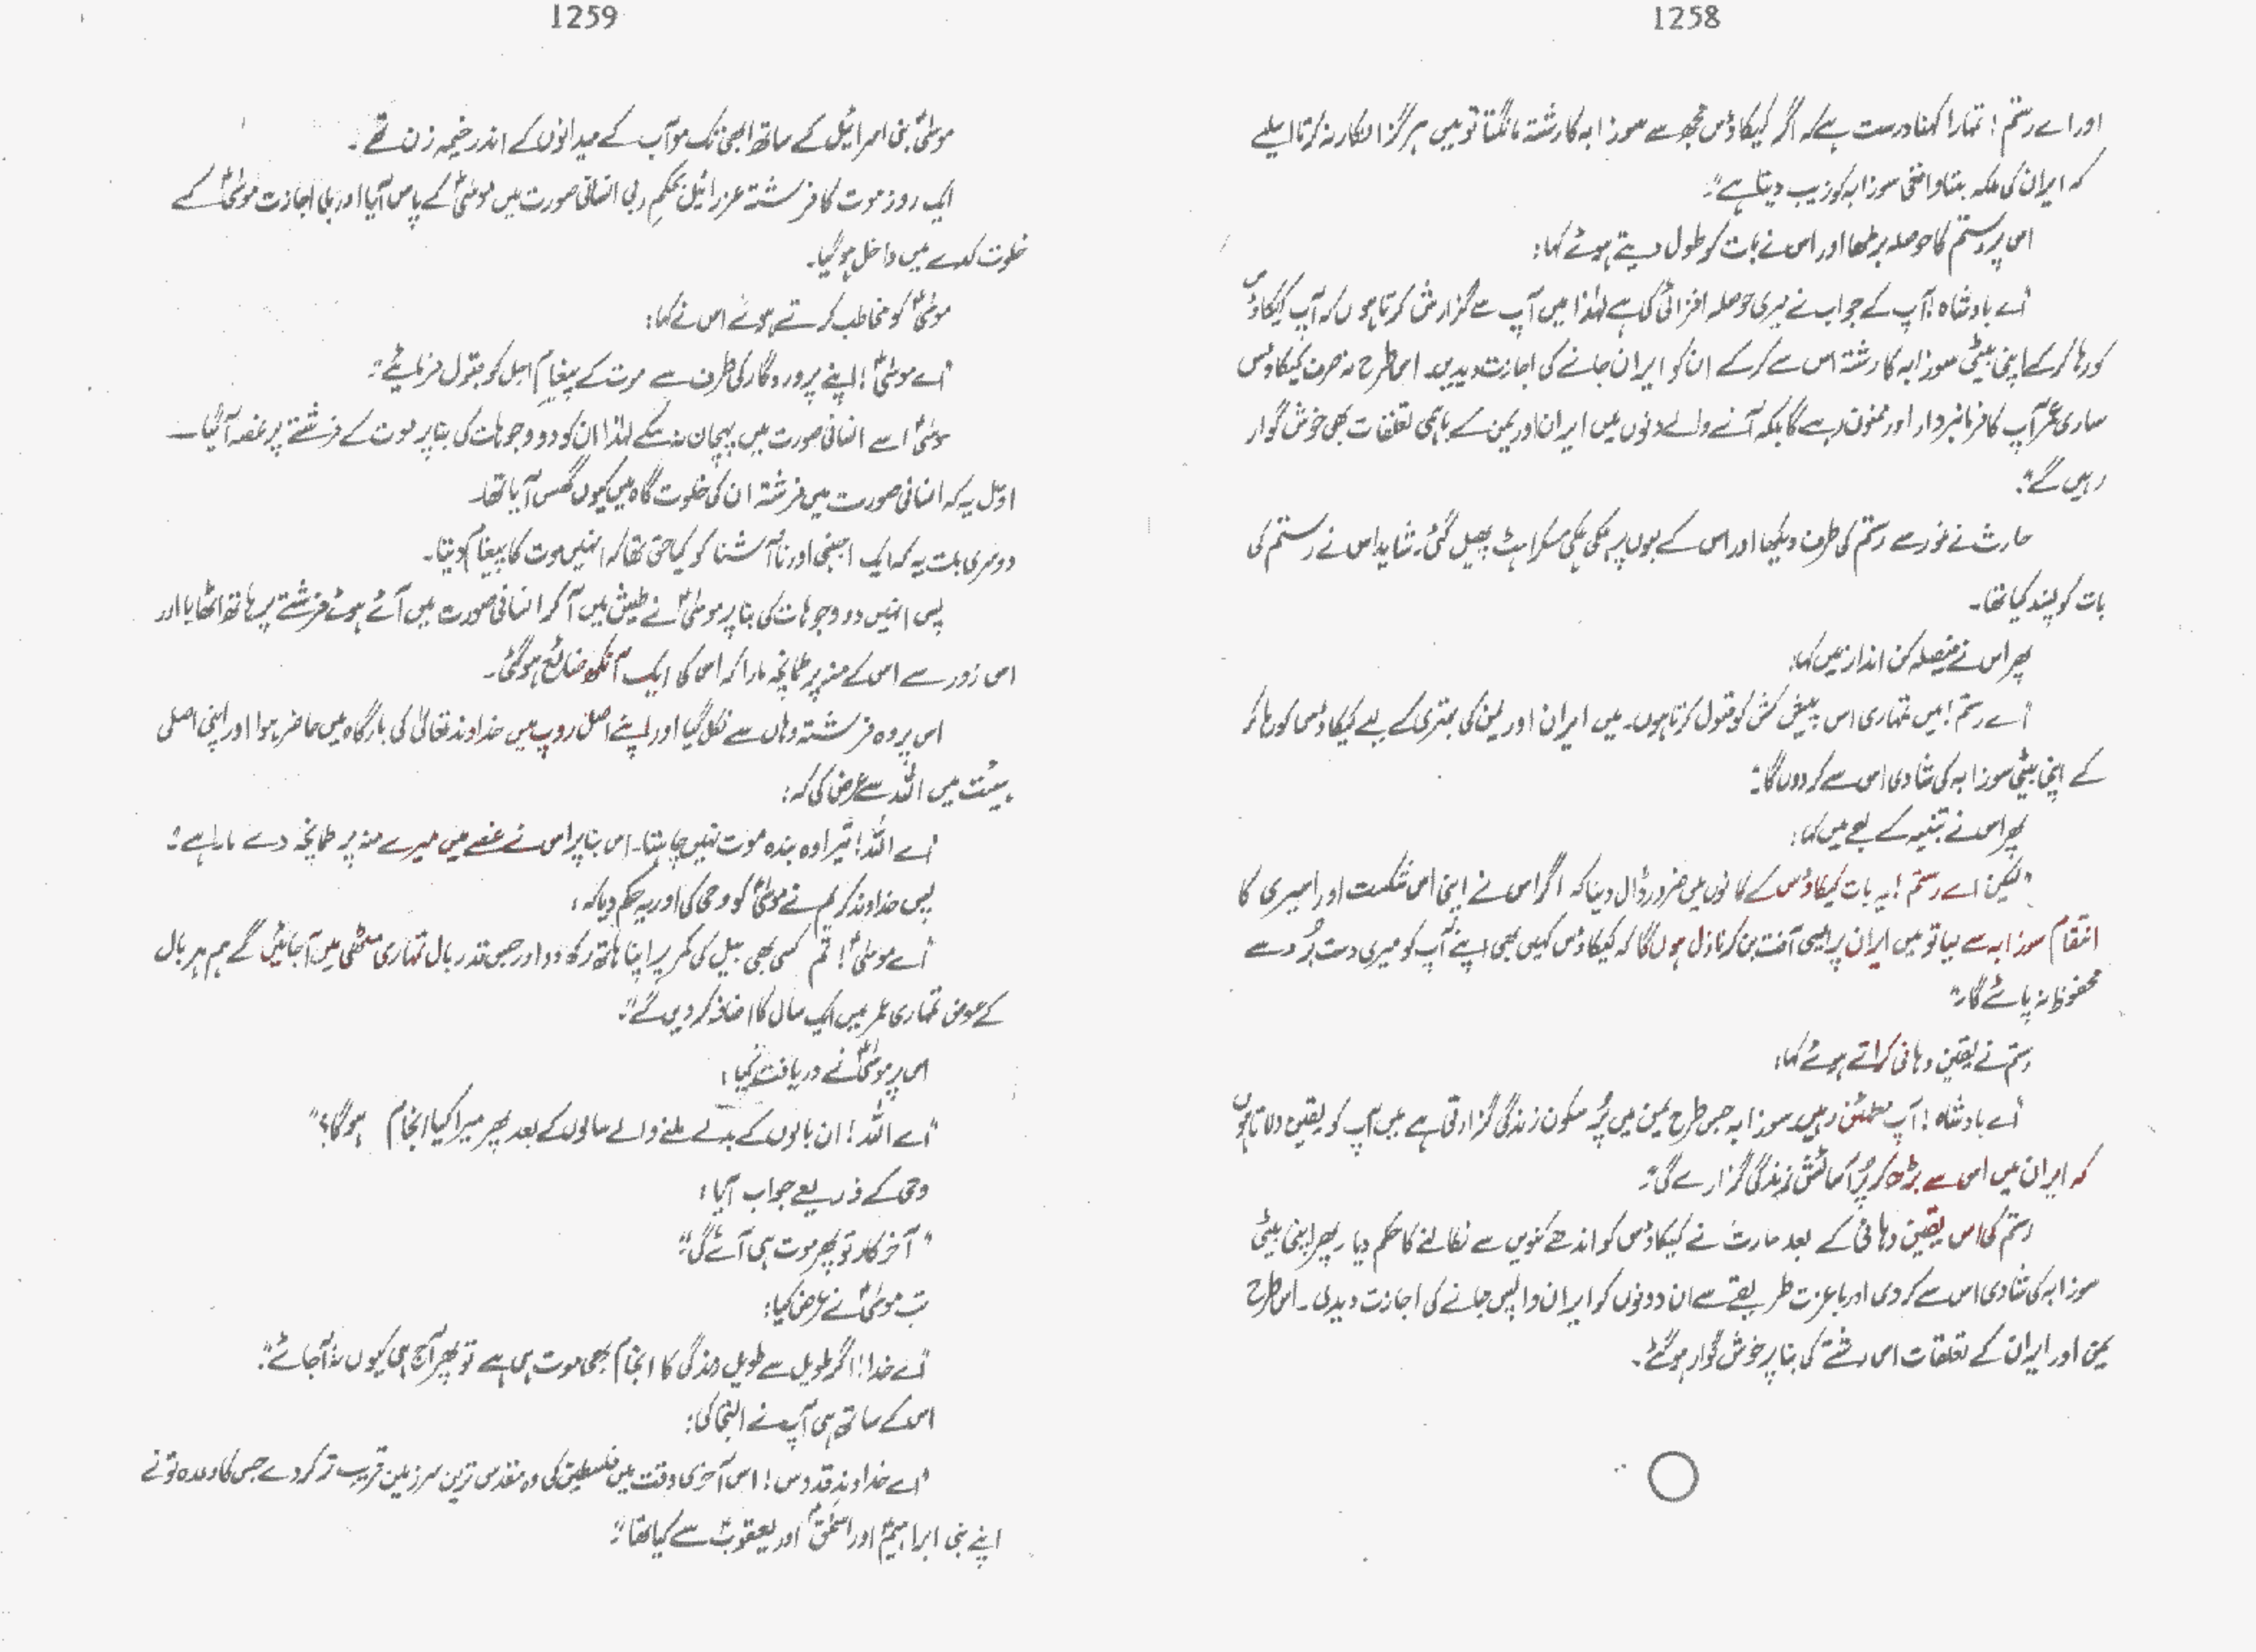 1258
اور اے رستم! تمہارا کہنا درست ہے کہ اگر کیکاؤس مجھ سے سوزابہ کا رشتہ مانگتا تو میں ہرگز انکار نہ کرتا اسلیے
کہ ایران کی ملکہ بننا واقعی سوزابہ کو زیب دیتا ہے"۔
اس پر رستم کا حوصلہ بڑھا اور اس نے بات کو طول دیتے ہوئے کہا:
"اے بادشاہ! آپ کے جواب نے میری حوصلہ افزائی کی ہے لہٰذا میں آپ سے گزارش کرتا ہوں کہ آپ کیکاؤس
کو رہا کر کے اپنی بیٹی سوزابہ کا رشتہ اس سے کر کے ان کو ایران جانے کی اجازت دیدیں۔ اس طرح نہ صرف کیکاؤس
ساری عمر آپ کا فرمانبردار اور ممنون رہے گا بلکہ آنے والے دنوں میں ایران اور یمن کے باہمی تعلقات بھی خوش گوار
رہیں گے"۔
حارث نے غور سے رستم کی طرف دیکھا اور اس کے لبوں پر ہلکی ہلکی مسکراہٹ پھیل گئی۔ شاید اس نے رستم کی
بات کو پسند کیا تھا۔
پھر اس نے فیصلہ کن انداز میں کہا:
"اے رستم! میں تمہاری اس پیش کش کو قبول کرتا ہوں۔ میں ایران اور یمن کی بہتری کے لیے کیکاؤس کو رہا کر
کے اپنی بیٹی سوزابہ کی شادی اس سے کر دوں گا"۔
پھر اس نے تنبیہہ کے لہجے میں کہا:
"لیکن اے رستم! یہ بات کیکاؤس کے کانوں میں ضرور ڈال دینا کہ اگر اس نے اپنی اس شکست اور اسیری کا
انتقام سوزابہ سے لیا تو میں ایران پر ایسی آفت بن کر نازل ہوں گا کہ کیکاؤس کہیں بھی اپنے آپ کو میری دست بُرد سے
محفوظ نہ پائے گا"۔
رستم نے یقین دہانی کراتے ہوئے کہا:
"اے بادشاہ! آپ مطمئن رہیں۔ سوزابہ جس طرح یمن میں پُر سکون زندگی گزارتی ہے میں آپ کو یقین دلاتا ہوں
کہ ایران میں اس سے بڑھ کر پُر آسائش زندگی گزارے گی"۔
رستم کی اس یقین دہانی کے بعد حارث نے کیکاؤس کو اندھے کنویں سے نکالنے کا حکم دیا۔ پھر اپنی بیٹی
سوزابہ کی شادی اس سے کر دی اور باعزت طریقے سے ان دونوں کو ایران واپس جانے کی اجازت دیدی۔ اس طرح
یمن اور ایران کے تعلقات اس رشتے کی بنا پر خوش گوار ہو گئے۔
1259
موسیٰؑ بنی اسرائیل کے ساتھ ابھی تک موآب کے میدانوں کے اندر خیمہ زن تھے۔
ایک روز موت کا فرشتہ عزرائیل بحکمِ ربی انسانی صورت میں موسیٰؑ کے پاس آیا اور بلا اجازت موسیٰؑ کے
خلوت کدے میں داخل ہو گیا۔
موسیٰؑ کو مخاطب کرتے ہوئے اس نے کہا:
"اے موسیٰؑ! اپنے پروردگار کی طرف سے موت کے پیغامِ اجل کو قبول فرمائیے"۔
موسیٰؑ اسے انسانی صورت میں پہچان نہ سکے لہٰذا ان کو دو وجوہات کی بنا پر موت کے فرشتے پر غصہ آ گیا۔
اوّل یہ کہ انسانی صورت میں فرشتہ ان کی خلوت گاہ میں کیوں گھس آیا تھا۔
دوسری بات یہ کہ ایک اجنبی اور ناآشنا کو کیا حق تھا کہ انہیں موت کا پیغام دیتا۔
پس انہیں دو وجوہات کی بنا پر موسیٰؑ نے طیش میں آ کر انسانی صورت میں آئے ہوئے فرشتے پر ہاتھ اٹھایا اور
اس زور سے اس کے منہ پر طمانچہ مارا کہ اس کی ایک آنکھ ضائع ہو گئی۔
اس پر وہ فرشتہ وہاں سے نکل گیا اور اپنے اصل روپ میں خداوند تعالیٰ کی بارگاہ میں حاضر ہوا اور اپنی اصلی
ہیئت میں اللہ سے عرض کی کہ:
"اے اللہ! تیرا وہ بندہ موت نہیں چاہتا۔ اس بنا پر اس نے غصے میں میرے منہ پر طمانچہ دے مارا ہے"۔
پس خداوند کریم نے موسیٰؑ کو وحی کی اور یہ حکم دیا کہ:
"اے موسیٰؑ! تم کسی بھی بیل کی کمر پر اپنا ہاتھ رکھ دو اور جس قدر بال تمہاری مٹھی میں آ جائیں گے ہم ہر بال
کے عوض تمہاری عمر میں ایک سال کا اضافہ کر دیں گے"۔
اس پر موسیٰؑ نے دریافت کیا:
"اے اللہ! ان بالوں کے بدلے ملنے والے سالوں کے بعد پھر میرا کیا انجام ہو گا؟"
وحی کے ذریعے جواب آیا:
"آخر کار تو پھر موت ہی آئے گی"۔
تب موسیٰؑ نے عرض کیا:
"اے خدا! اگر طویل سے طویل زندگی کا انجام بھی موت ہی ہے تو پھر آج ہی کیوں نہ آ جائے"۔
اس کے ساتھ ہی آپ نے التجا کی:
"اے خداوندِ قدوس! اس آخری وقت میں فلسطین کی وہ مقدس ترین سرزمین قریب تر کر دے جس کا وعدہ تو نے
اپنے نبی ابراہیمؑ اور اسحٰقؑ اور یعقوبؑ سے کیا تھا"۔